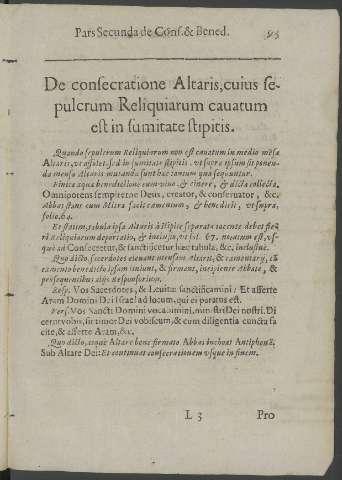 Pars Secunda de Cons. & Bened. 95
De consecratione Altaris, cuius se-
pulcrum Reliquiarum cauatum
est in sumitate stipitis.
Quando sepulcrum Reliquiarum non est cauatum in medio mēsa
Altaris, vt assolet, sed in sumitate stipiti vt supra ipsum sit ponen-
da mensa Altaris mutanda sunt hac tantum qua sequuntur.
Finita aqua benedictione cum vino & cinere, & dicta collecta,
Omnipotens sempiterne Deus, creator, & conseruator, &c.
Abbas stans cum Mitra facit camentum, & benedicit, vt supra,
folio.64.
Et statim, tabula ipsa Altaris à stipite separata iacente debet fie-
ri Reliquiarum deportatio, & inclusio, vt fol. 67. notatum est, vs-
que ad Consecretur, & sanctificetur hæc tabula, &c. inclusiue.
Quo dicto, sacerdotes eleuant mensam Altaris, & camentarij, cū
camento benedicto ipsam iniunt, & firmant, incipiente Abbate, &
prosequentibus alijs Responsorium.
Resp. Vos Sacerdotes, & Leuitæ sanctificamini: Et afferte
Aram Domini Dei Israel ad locum, qui ei paratus est.
Vers. Vos Sancti Domini vocabimini, ministri Dei nostri. Di
cetur vobis, sit timor Dei vobiscum, & cum diligentia cuncta fa
cite, & afferte Aram, &c.
Quo dicto, atque Altare bene firmato Abbas inchoat Antiphonā,
Sub Altare Dei: Et continuat consecrationem vsque in finem.
L 3 Pro